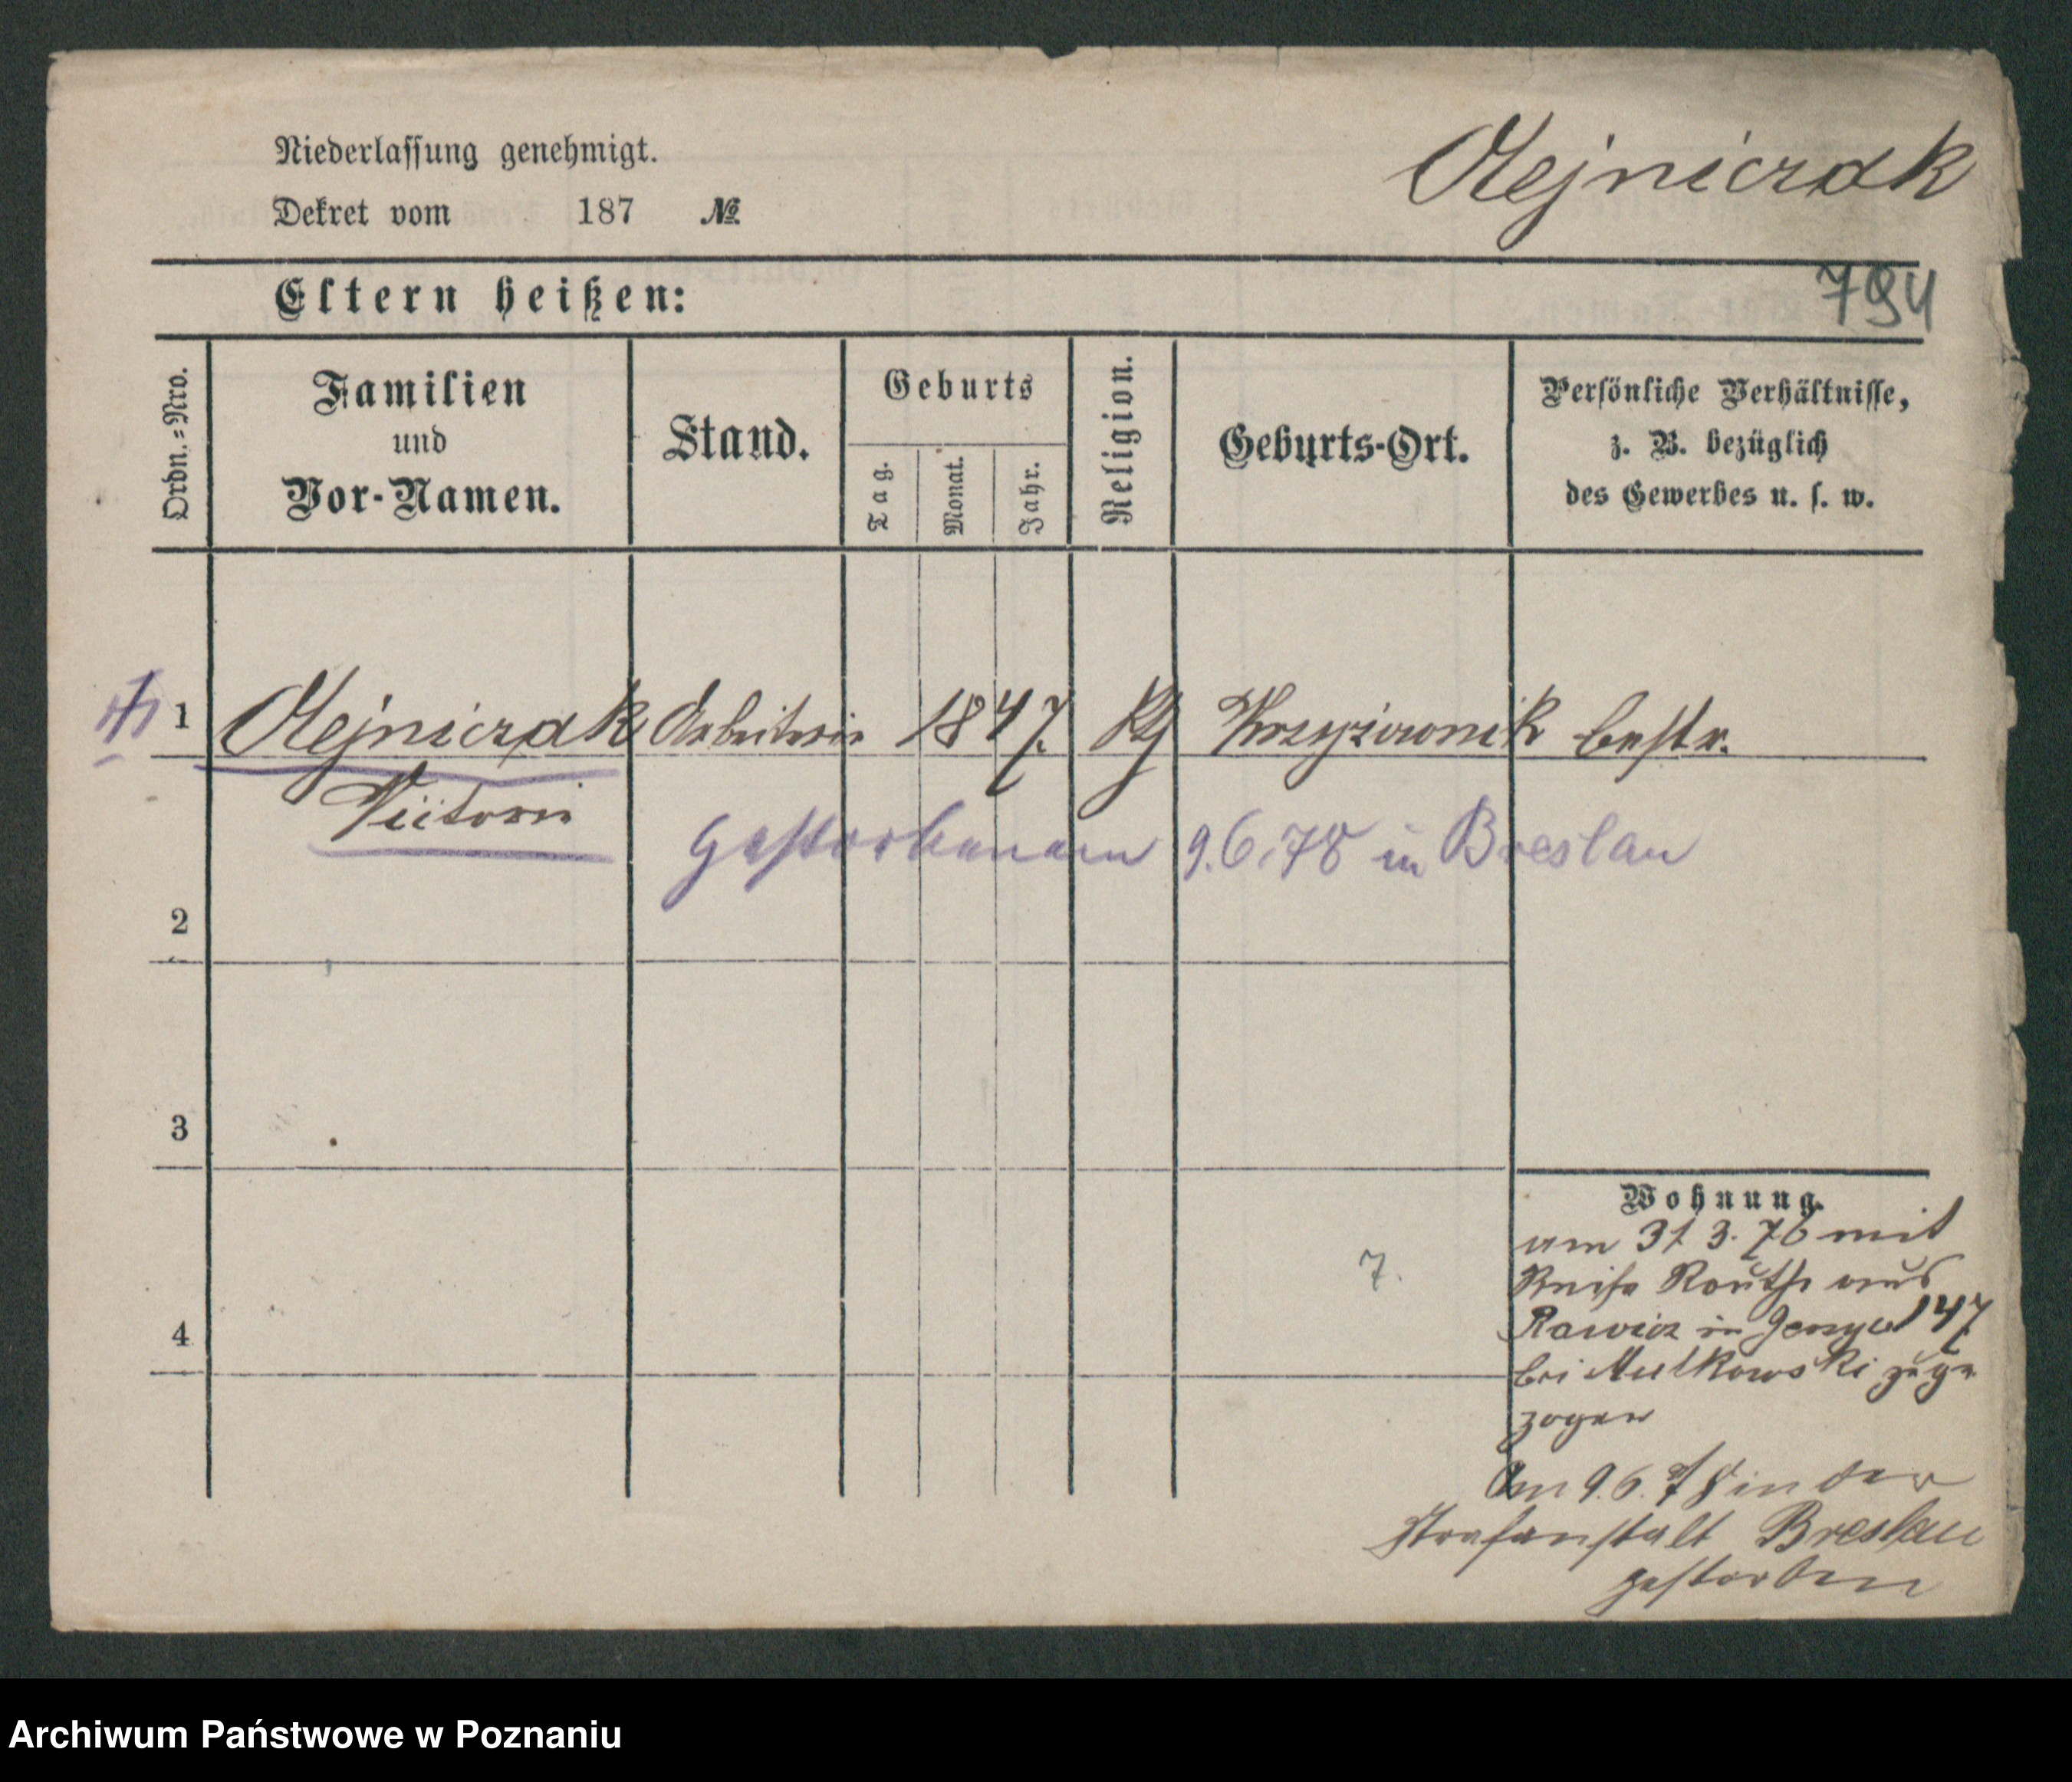 Niederlassung genehmigt.
Olejniczak
Dekret vom 187 №
Eltern heißen:
794
Ordn.-Nro.
Familien
und
Vor-Namen.
Stand.
Geburts
Tag.
Monat.
Jahr.
Religion.
Geburts-Ort.
Persönliche Verhältnisse,
z. B. bezüglich
des Gewerbes u. s. w.
1 Olejniczak Arbeiterin 1847. Krzyżownik bestr.
Victoria
gestorben am 9.6.78 in Breslau
2
3
Wohnung.
am 31 3. 76 mit
7. Route aus
Rawicz in 147
4
bei Mulkowski zuge
zogen
Am 9.6.78 in der
Strafanstalt Breslau
gestorben
Archiwum Państwowe w Poznaniu